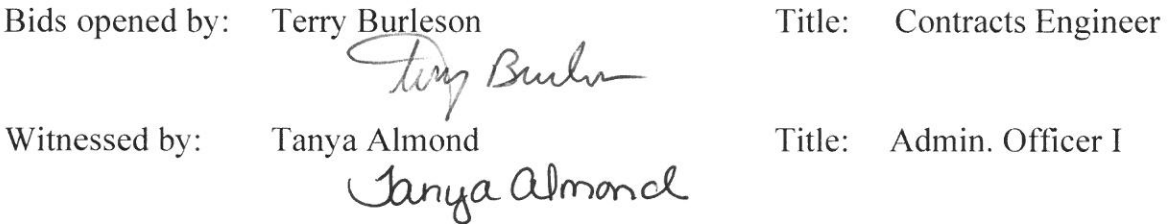 Bids opened by: Terry Burleson Title: Contracts Engineer
Terry Burleson
Witnessed by: Tanya Almond Title: Admin. Officer I
Tanya Almond